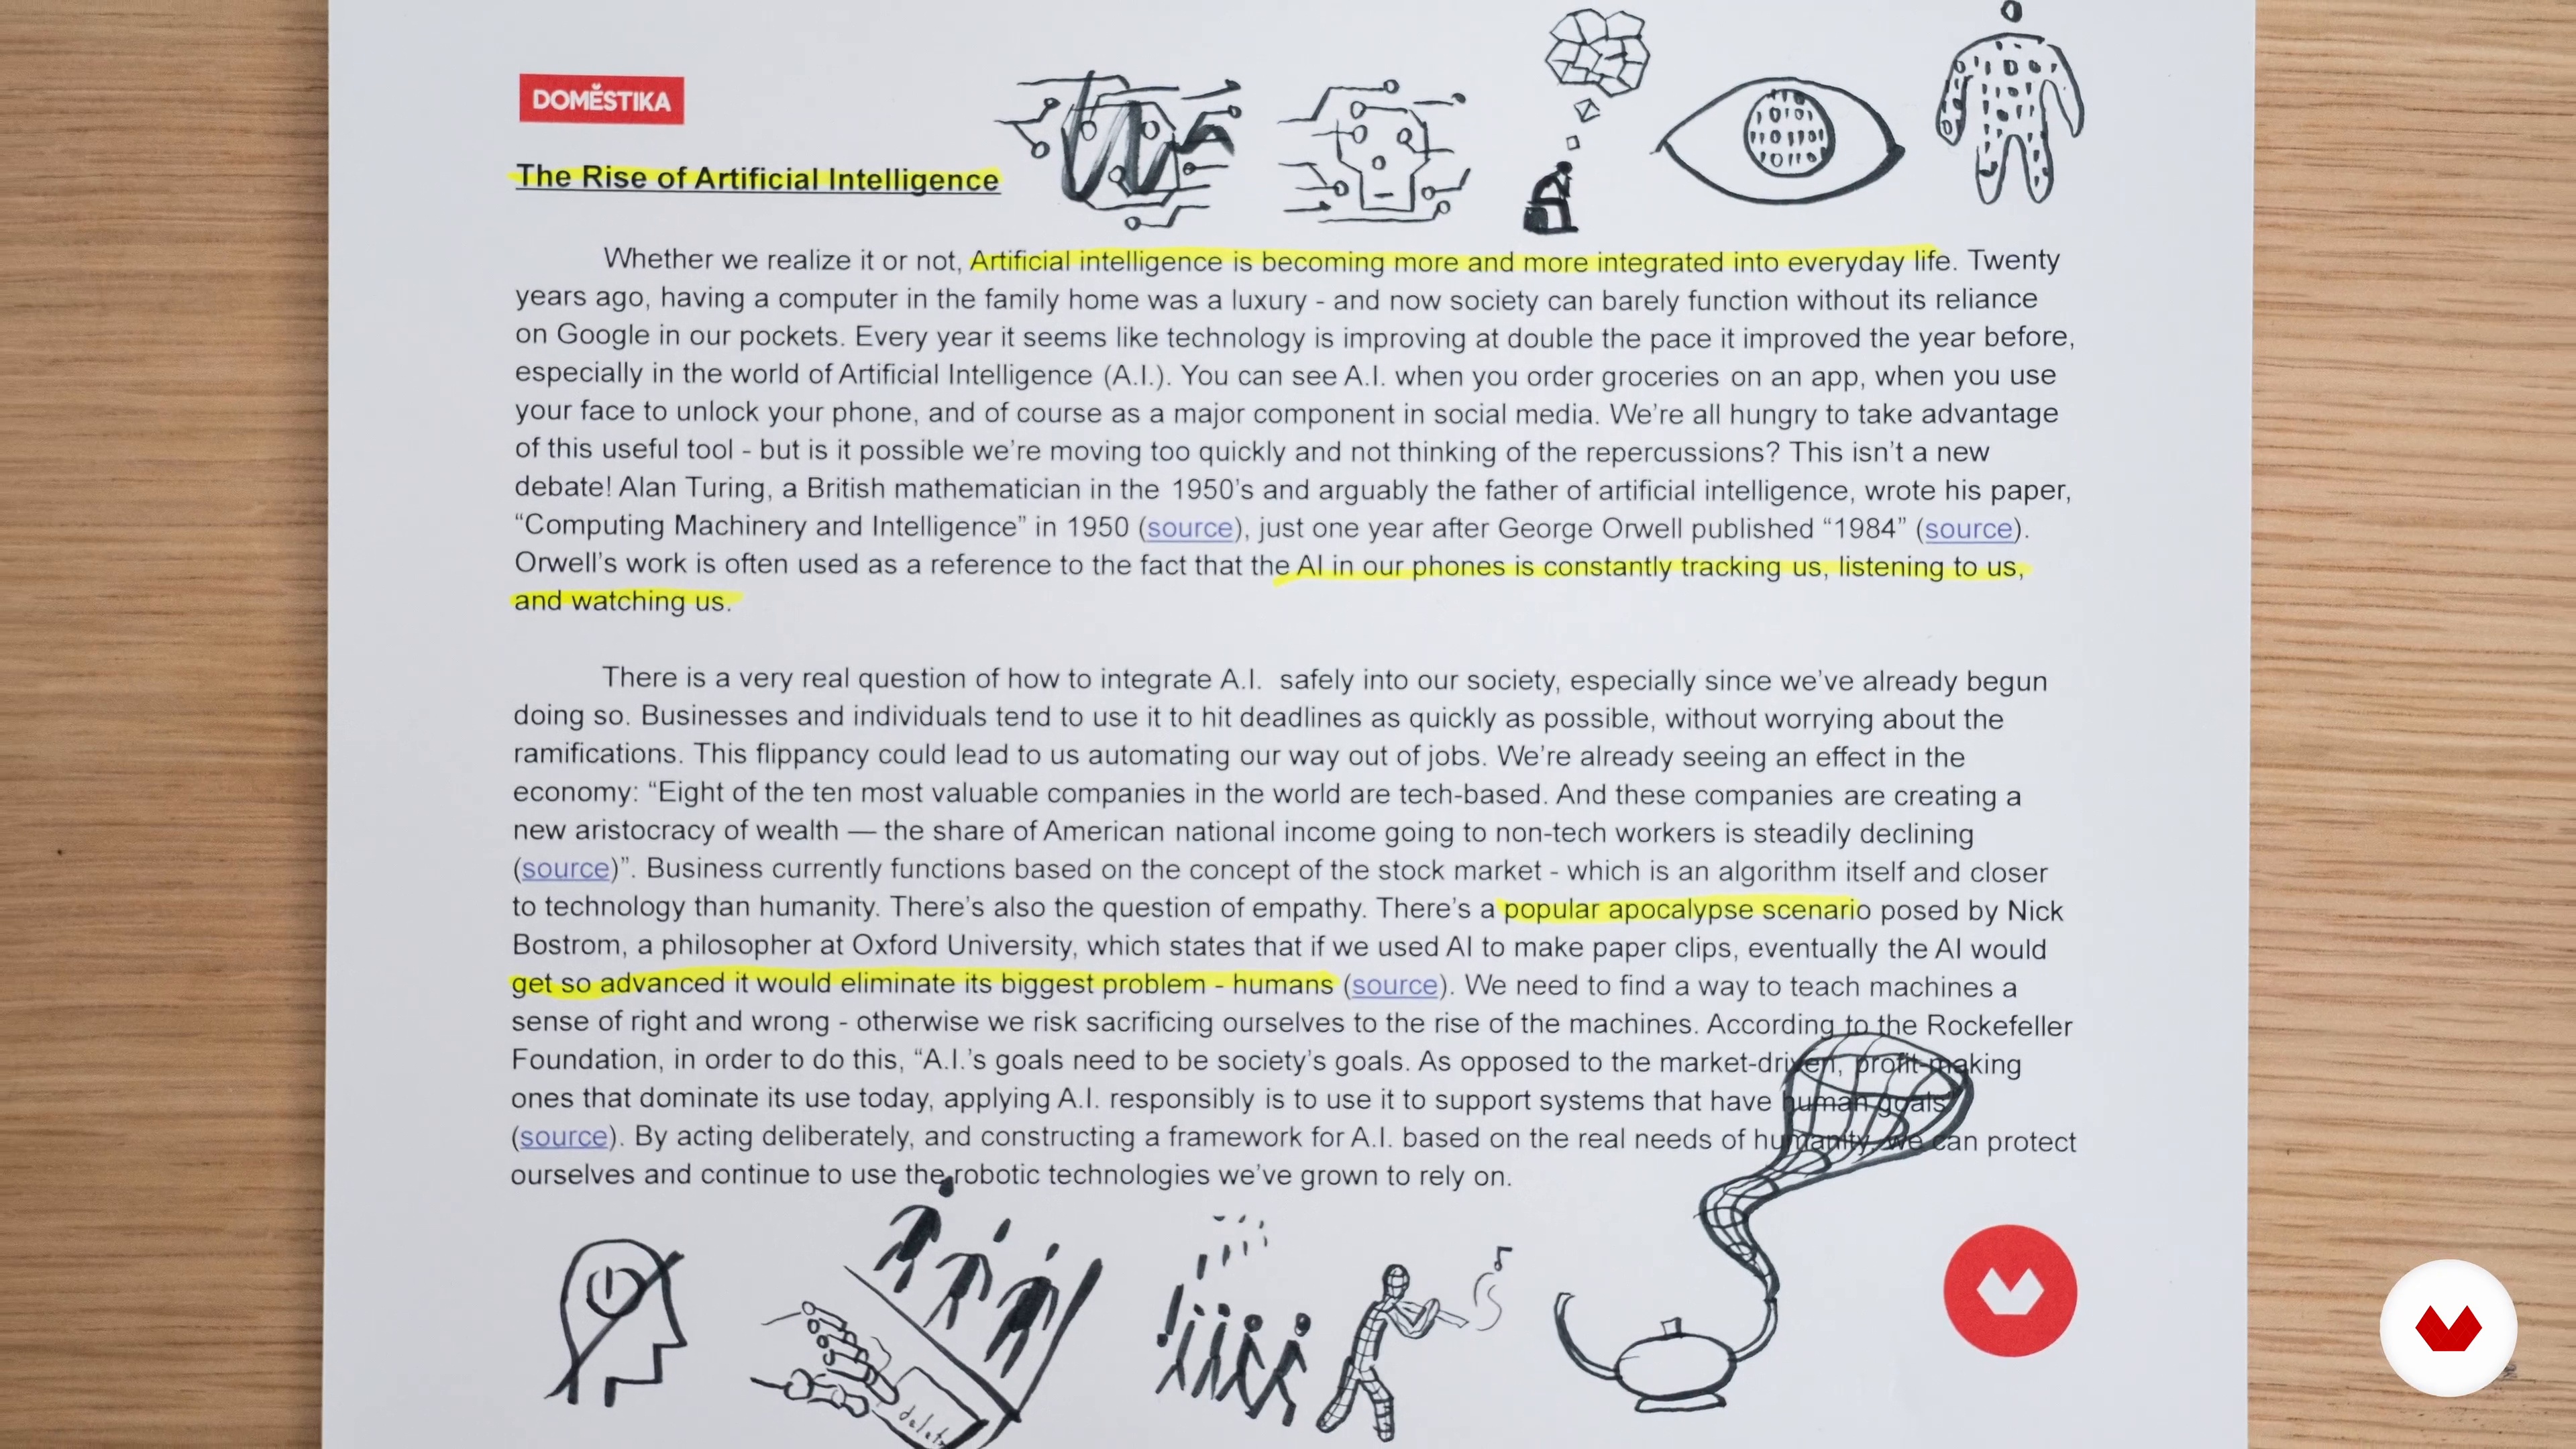 DOMĚSTIKA
The Rise of Artificial Intelligence
Whether we realize it or not, Artificial intelligence is becoming more and more integrated into everyday life. Twenty
years ago, having a computer in the family home was a luxury - and now society can barely function without its reliance
on Google in our pockets. Every year it seems like technology is improving at double the pace it improved the year before,
especially in the world of Artificial Intelligence (A.I.). You can see A.I. when you order groceries on an app, when you use
your face to unlock your phone, and of course as a major component in social media. We're all hungry to take advantage
of this useful tool - but is it possible we're moving too quickly and not thinking of the repercussions? This isn't a new
debate! Alan Turing, a British mathematician in the 1950's and arguably the father of artificial intelligence, wrote his paper,
“Computing Machinery and Intelligence” in 1950 (source), just one year after George Orwell published “1984” (source).
Orwell's work is often used as a reference to the fact that the AI in our phones is constantly tracking us, listening to us,
and watching us.
There is a very real question of how to integrate A.I. safely into our society, especially since we've already begun
doing so. Businesses and individuals tend to use it to hit deadlines as quickly as possible, without worrying about the
ramifications. This flippancy could lead to us automating our way out of jobs. We're already seeing an effect in the
economy: “Eight of the ten most valuable companies in the world are tech-based. And these companies are creating a
new aristocracy of wealth — the share of American national income going to non-tech workers is steadily declining
(source)”. Business currently functions based on the concept of the stock market - which is an algorithm itself and closer
to technology than humanity. There's also the question of empathy. There's a popular apocalypse scenario posed by Nick
Bostrom, a philosopher at Oxford University, which states that if we used AI to make paper clips, eventually the AI would
get so advanced it would eliminate its biggest problem - humans (source). We need to find a way to teach machines a
sense of right and wrong - otherwise we risk sacrificing ourselves to the rise of the machines. According to the Rockefeller
Foundation, in order to do this, “A.I.'s goals need to be society's goals. As opposed to the market-driven, profit-making
ones that dominate its use today, applying A.I. responsibly is to use it to support systems that have human goals”
(source). By acting deliberately, and constructing a framework for A.I. based on the real needs of humanity, we can protect
ourselves and continue to use the robotic technologies we've grown to rely on.
delete